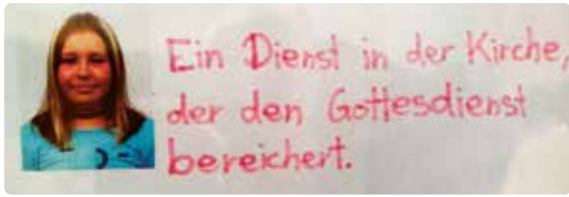 Ein Dienst in der Kirche,
der den Gottesdienst
bereichert.